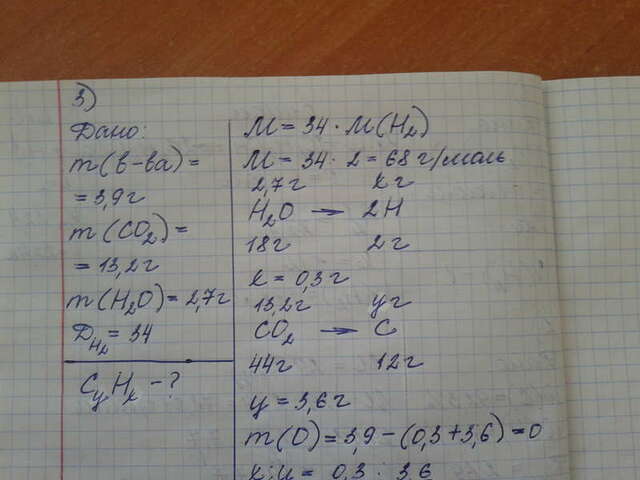 3)
Дано:
m(в-ва) =
= 3,9г
m(CO₂) =
= 13,2г
m(H₂O) = 2,7г
D_H₂ = 34
CyHx - ?
M = 34 · M(H₂)
M = 34 · 2 = 68 г/моль
2,7г xг
H₂O → 2H
18г 2г
x = 0,3г
13,2г yг
CO₂ → C
44г 12г
y = 3,6г
m(O) = 3,9 - (0,3 + 3,6) = 0
x : y = 0,3 : 3,6